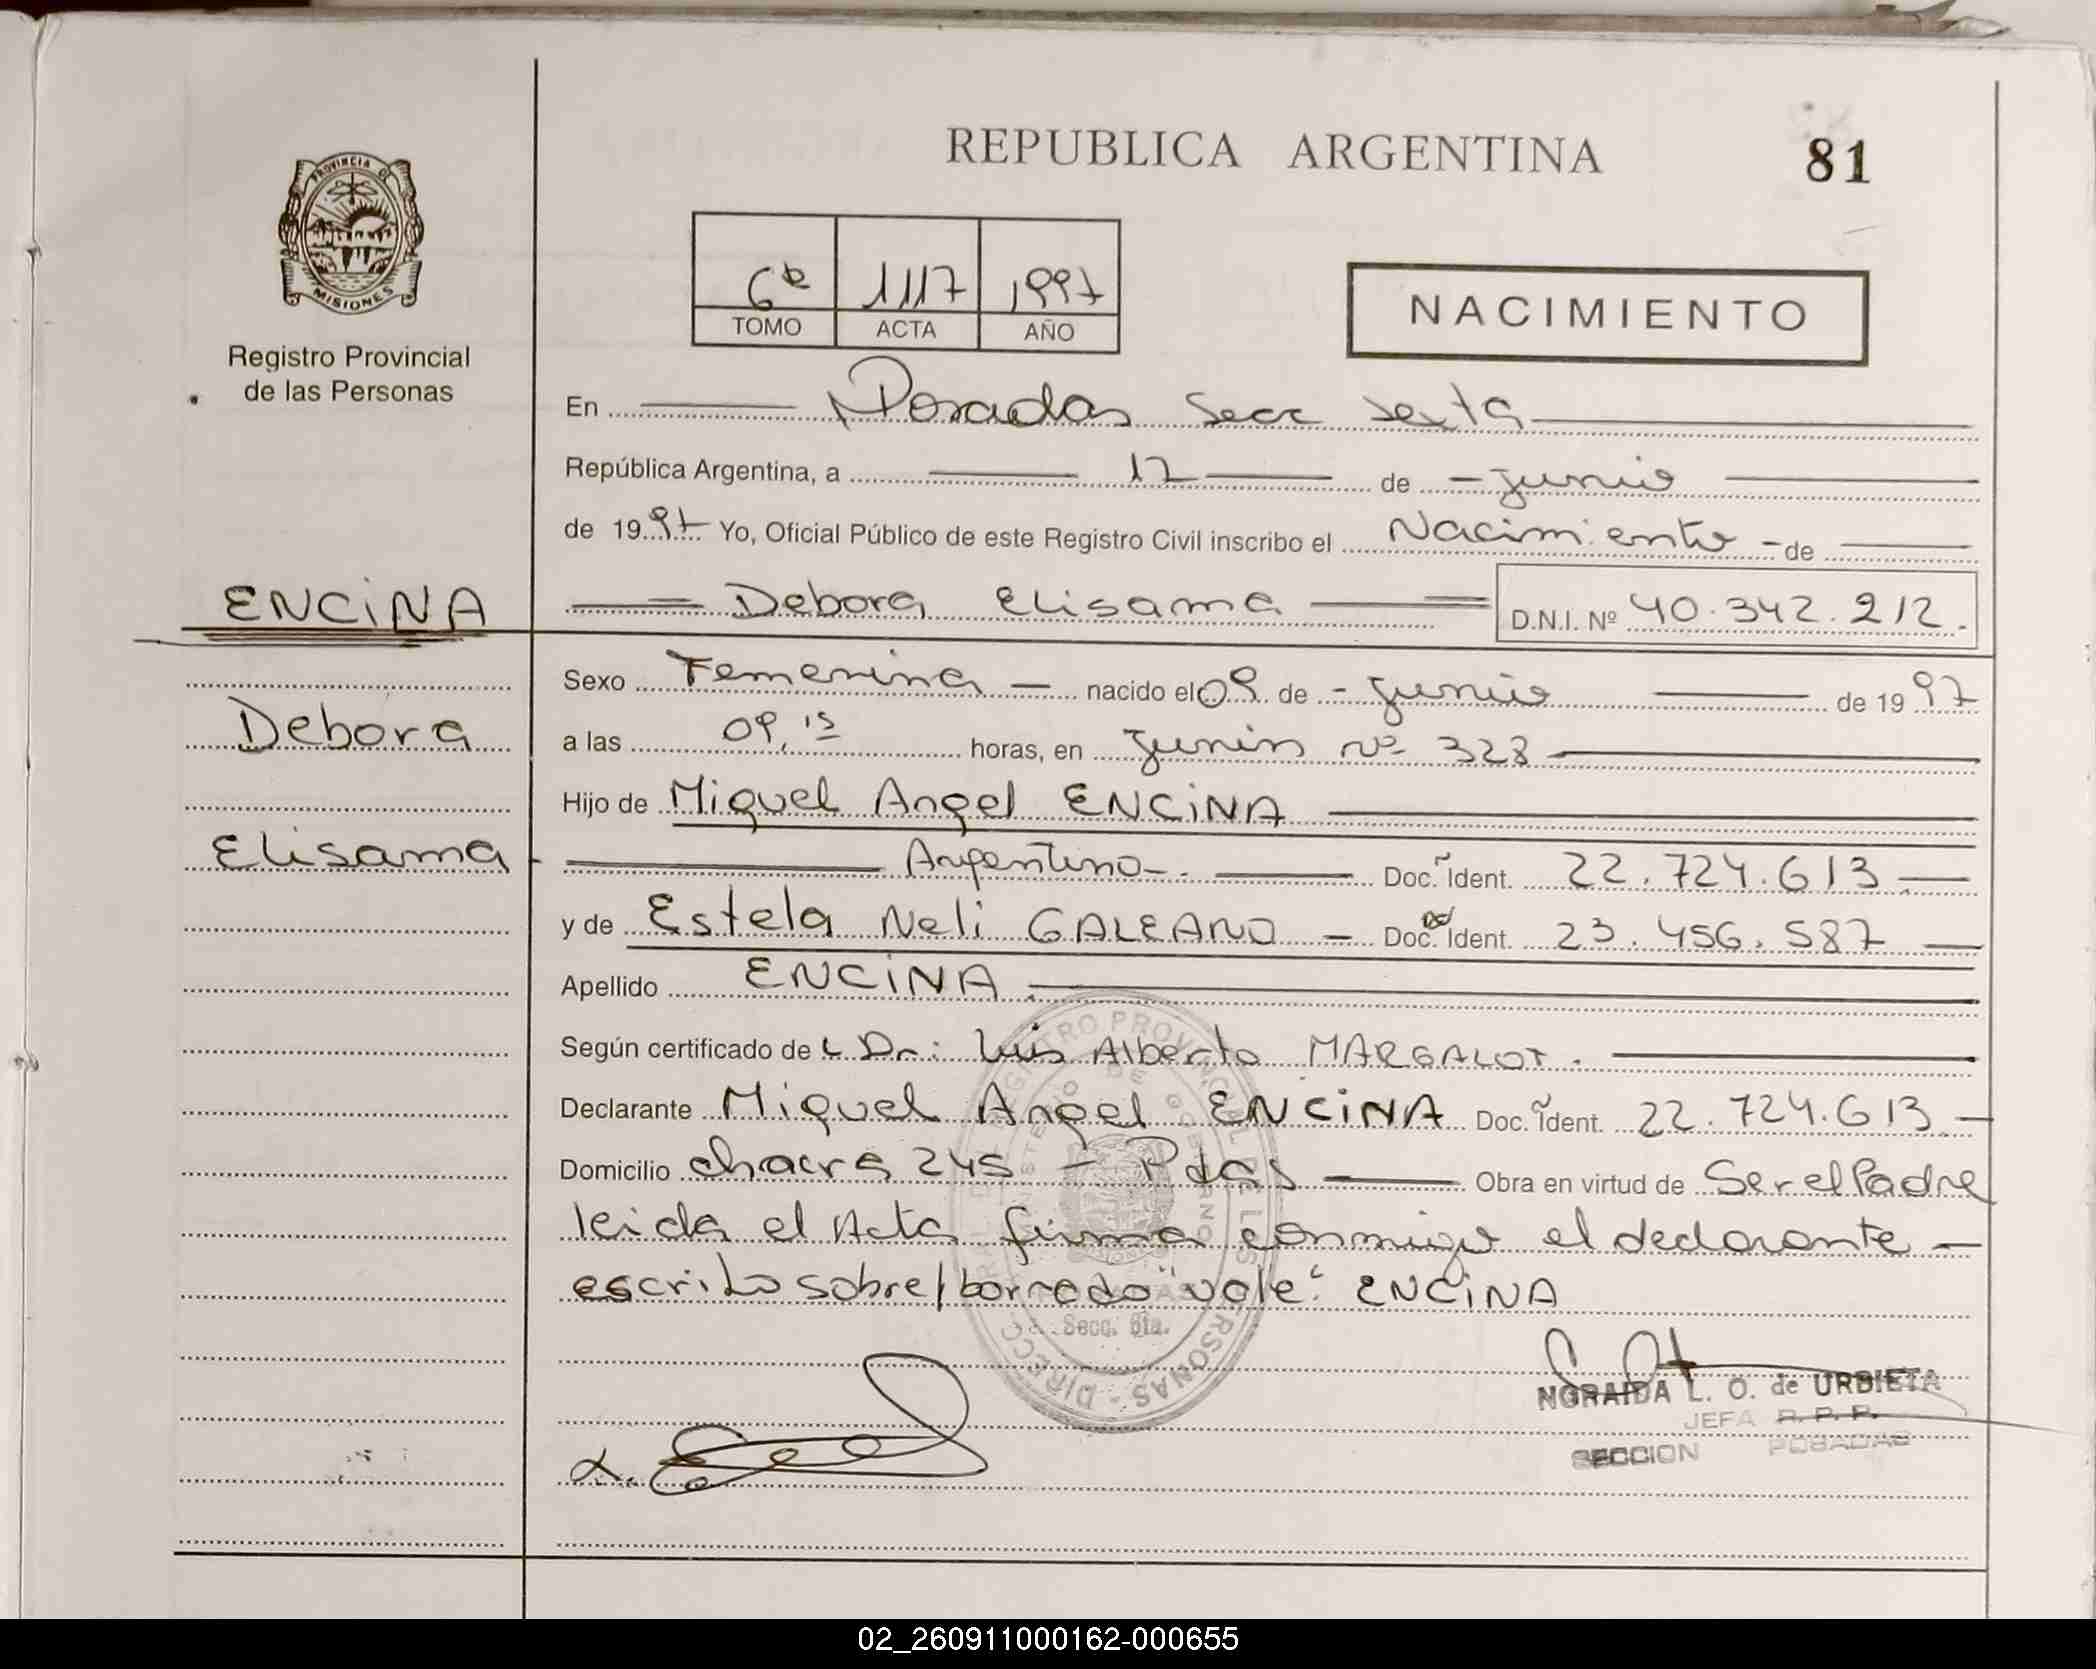 REPUBLICA ARGENTINA
81
PROVINCIA DE
MISIONES
Registro Provincial
de las Personas
1117 1997
TOMO ACTA AÑO
NACIMIENTO
En Posadas Secc Sexta
República Argentina, a 12 de junio
de 1997 Yo, Oficial Público de este Registro Civil inscribo el Nacimiento de
ENCINA
Debora Elisama D.N.I. Nº 40.342.212.
Sexo Femenina nacido el 09 de junio de 1997
Debora
a las 09,15 horas, en Junin nº 328
Hijo de Miguel Angel ENCINA
Elisama
Argentino Doc. Ident. 22.724.613
y de Estela Neli GALEANO Doc. Ident. 23.456.587
Apellido ENCINA
Según certificado de Dr: Luis Alberto MARGALOT.
Declarante Miguel Angel ENCINA Doc. Ident. 22.724.613
Domicilio chacra 245 - Pdas Obra en virtud de Ser el Padre
leida el Acta firma conmigo el declarante
escrito sobre/borrado "vale": ENCINA
Secc. 6ta.
L. O. de URBIETA
JEFA R. P. P.
SECCION POSADAS
02_260911000162-000655